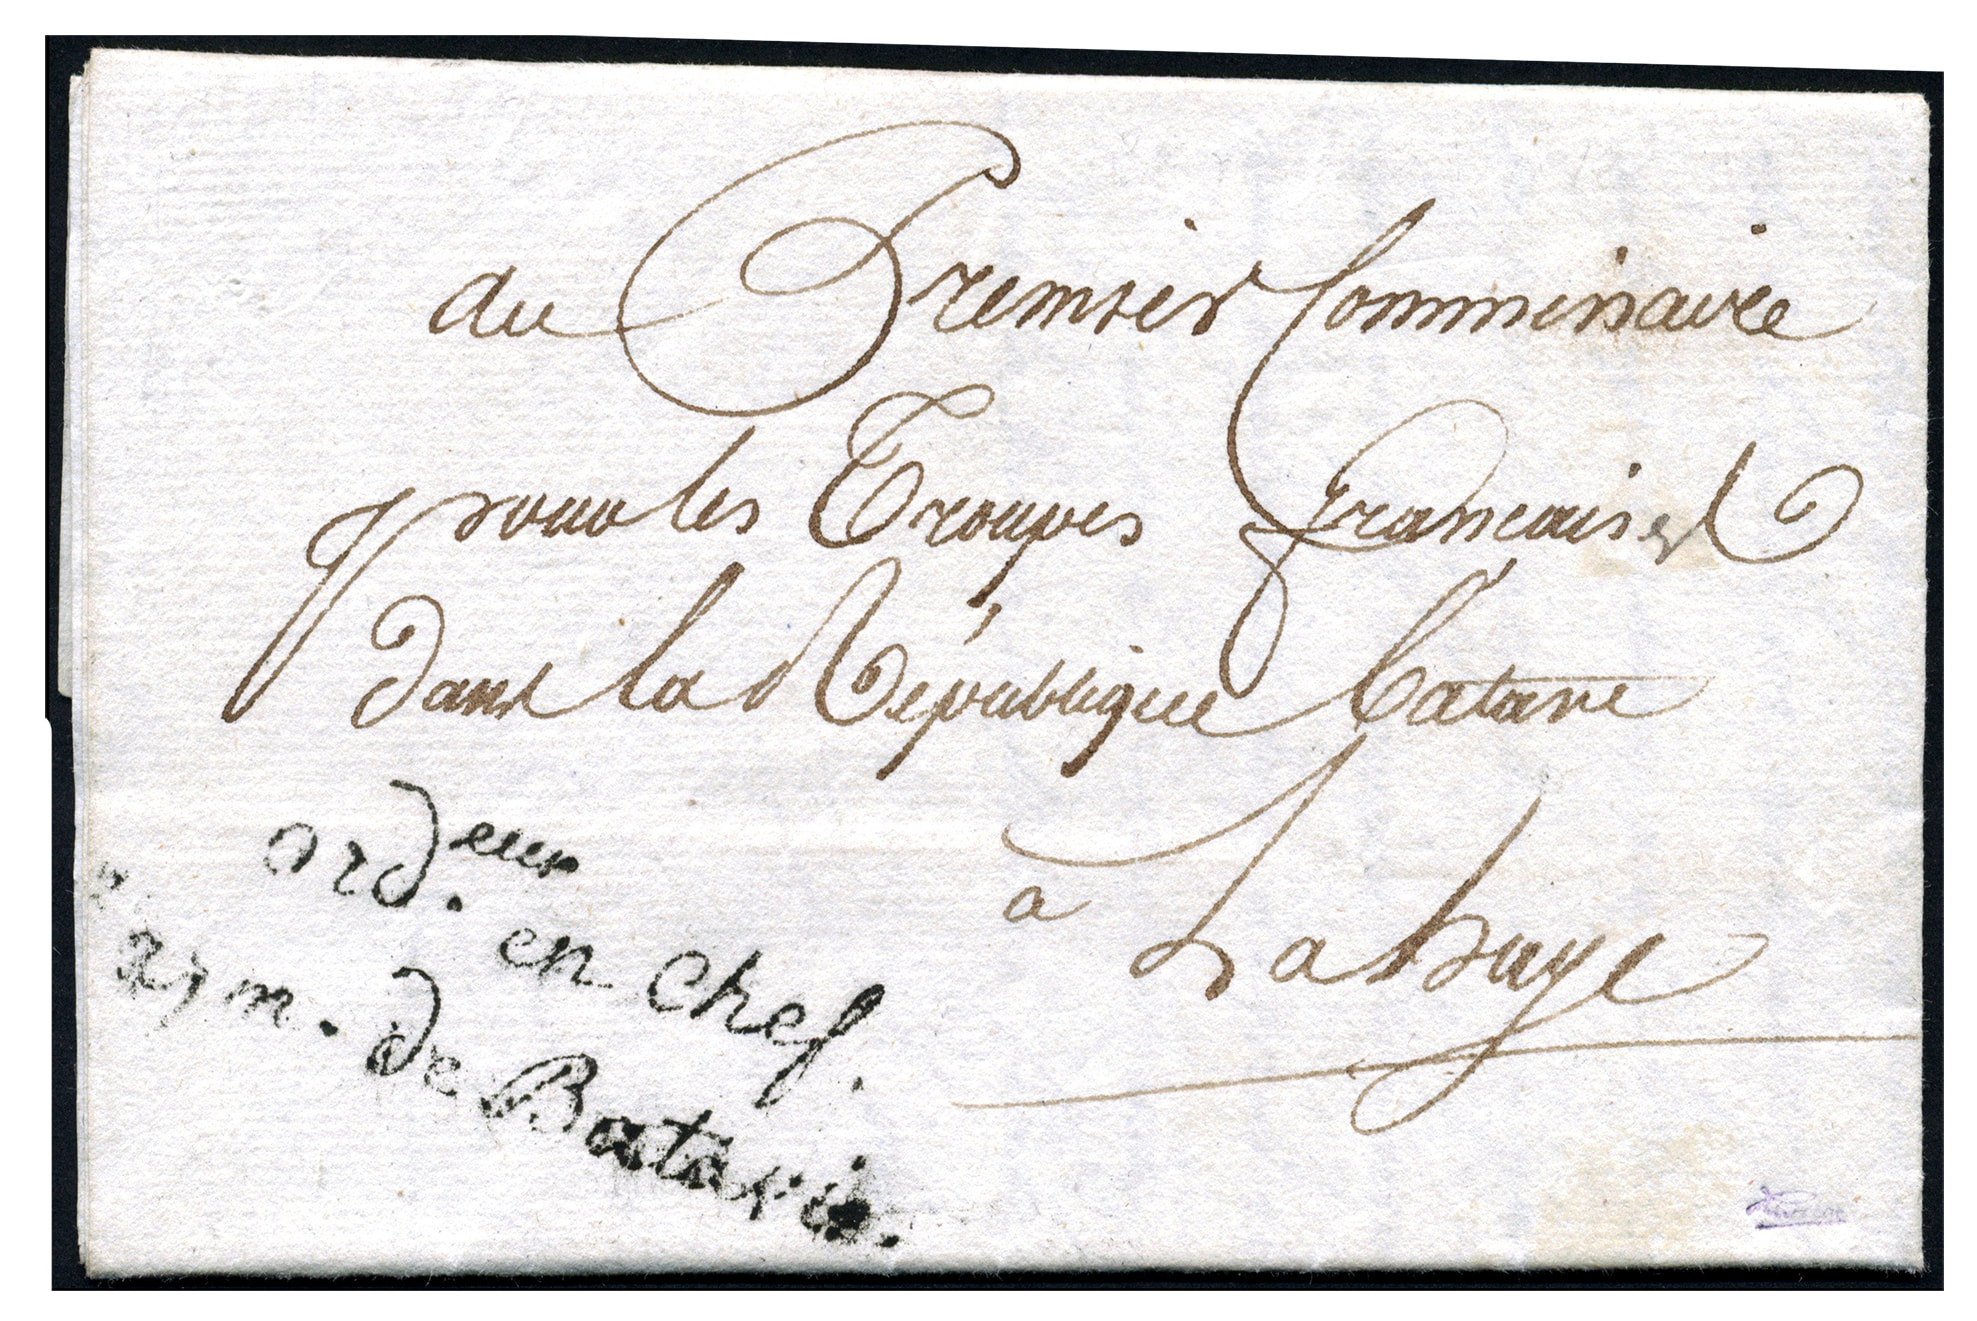 au Premier Commissaire
pour les Troupes françaises
dans la République batave
a Lahaye
ord.eur en chef.
arm. de Batavie.